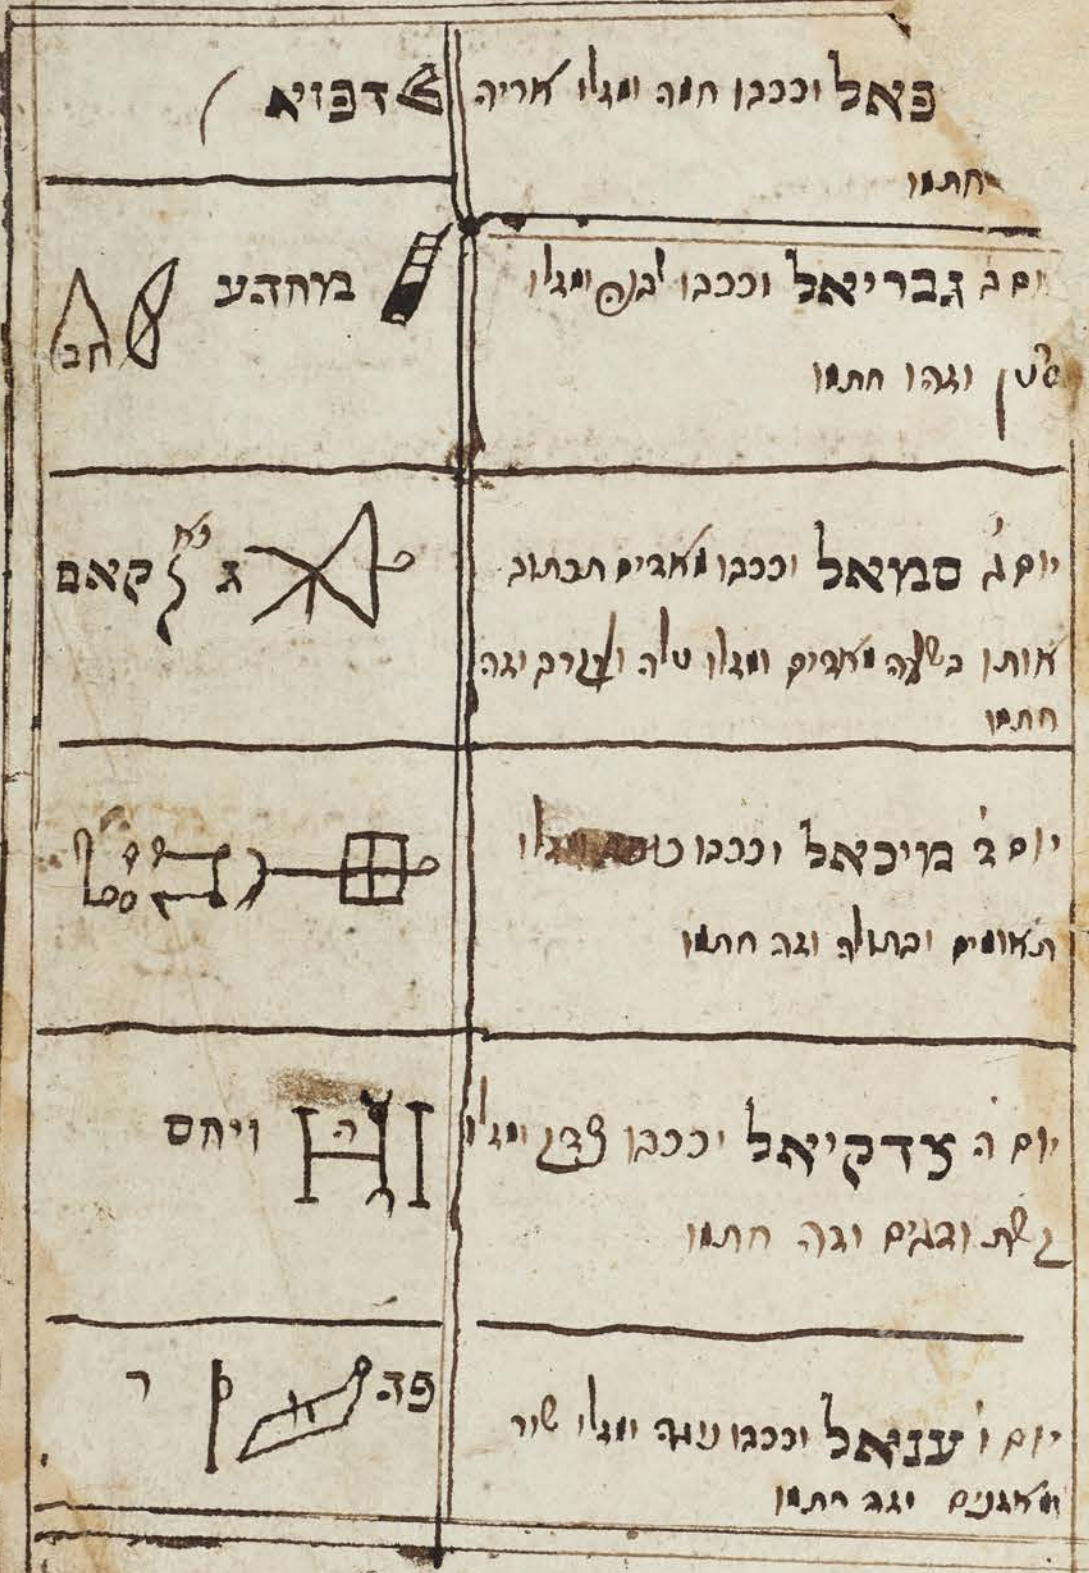 פאל וככבו חמה ומזלו אריה
חתמו
דפזיא
יום ב גבריאל וככבו לבנה ומזלו
סרטן וזהו חתמו
מחהע
חב
יום ג' סמאל וככבו מאדים תכתוב
אותו בשעה מאדים ומזלו טלה ועקרב וזה
חתמו
ג
קאם
יום ד' מיכאל וככבו כוכב ומזלו
תאומים ובתולה וזה חתמו
יום ה' צדקיאל וככבו צדק ומזלו
קשת ודגים וזה חתמו
ה ויחס
יום ו' ענאל וככבו נוגה ומזלו שור
ומאזנים וזה חתמו
פה
ר